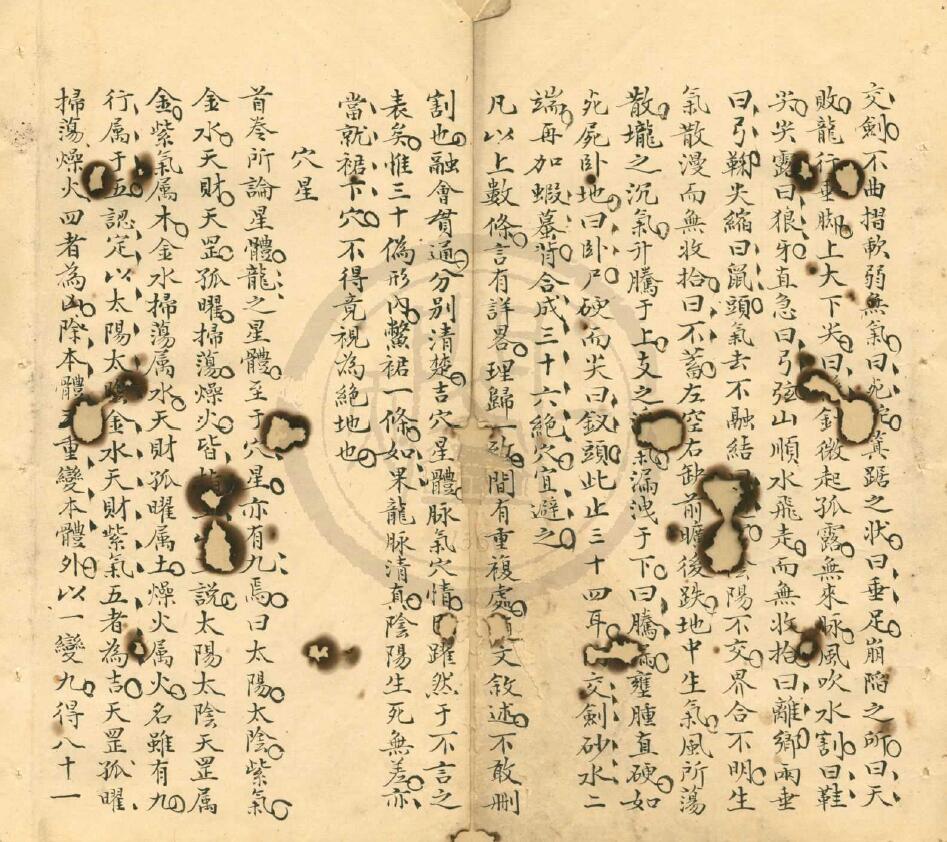 交劍不曲摺軟弱無氣曰死箕踞之狀曰垂足崩陷之所曰天
敗龍行垂脚上大下尖曰針微起孤露無來脉風吹水割曰鞋
尖尖露曰狼牙直急曰弓弦山順水飛走而無收拾曰離鄉兩垂
曰弓鞘尖縮曰鼠頭氣去不融結陰陽不交界合不明生
氣散漫而無收拾曰不蓄左空右缺前曠後跌地中生氣風所蕩
散壠之沉氣升騰于上支之漏洩于下曰騰漏壅腫直硬如
死屍卧地曰卧尸硬而尖曰釵頭此止三十四耳交劍砂水二
端再加蝦蟇背合成三十六絕穴宜避之
凡以上數條言有詳畧理歸一致間有重複處文敘述不敢刪
割也融會貫通分別清楚吉穴星體脉氣穴情躍然于不言之
表矣惟三十偽形內鱉裙一條如果龍脉清真陰陽生死無差亦
當就裙下穴不得竟視為絕地也
穴星
首卷所論星體龍之星體至于穴星亦有九焉曰太陽太陰紫氣
金水天財天罡孤曜掃蕩燥火皆說太陽太陰天罡属
金紫氣属木金水掃蕩属水天財孤曜属土燥火属火名雖有九
行属于五認定以太陽太陰金水天財紫氣五者為吉天罡孤曜
掃蕩燥火四者為凶除本體重變本體外以一變九得八十一